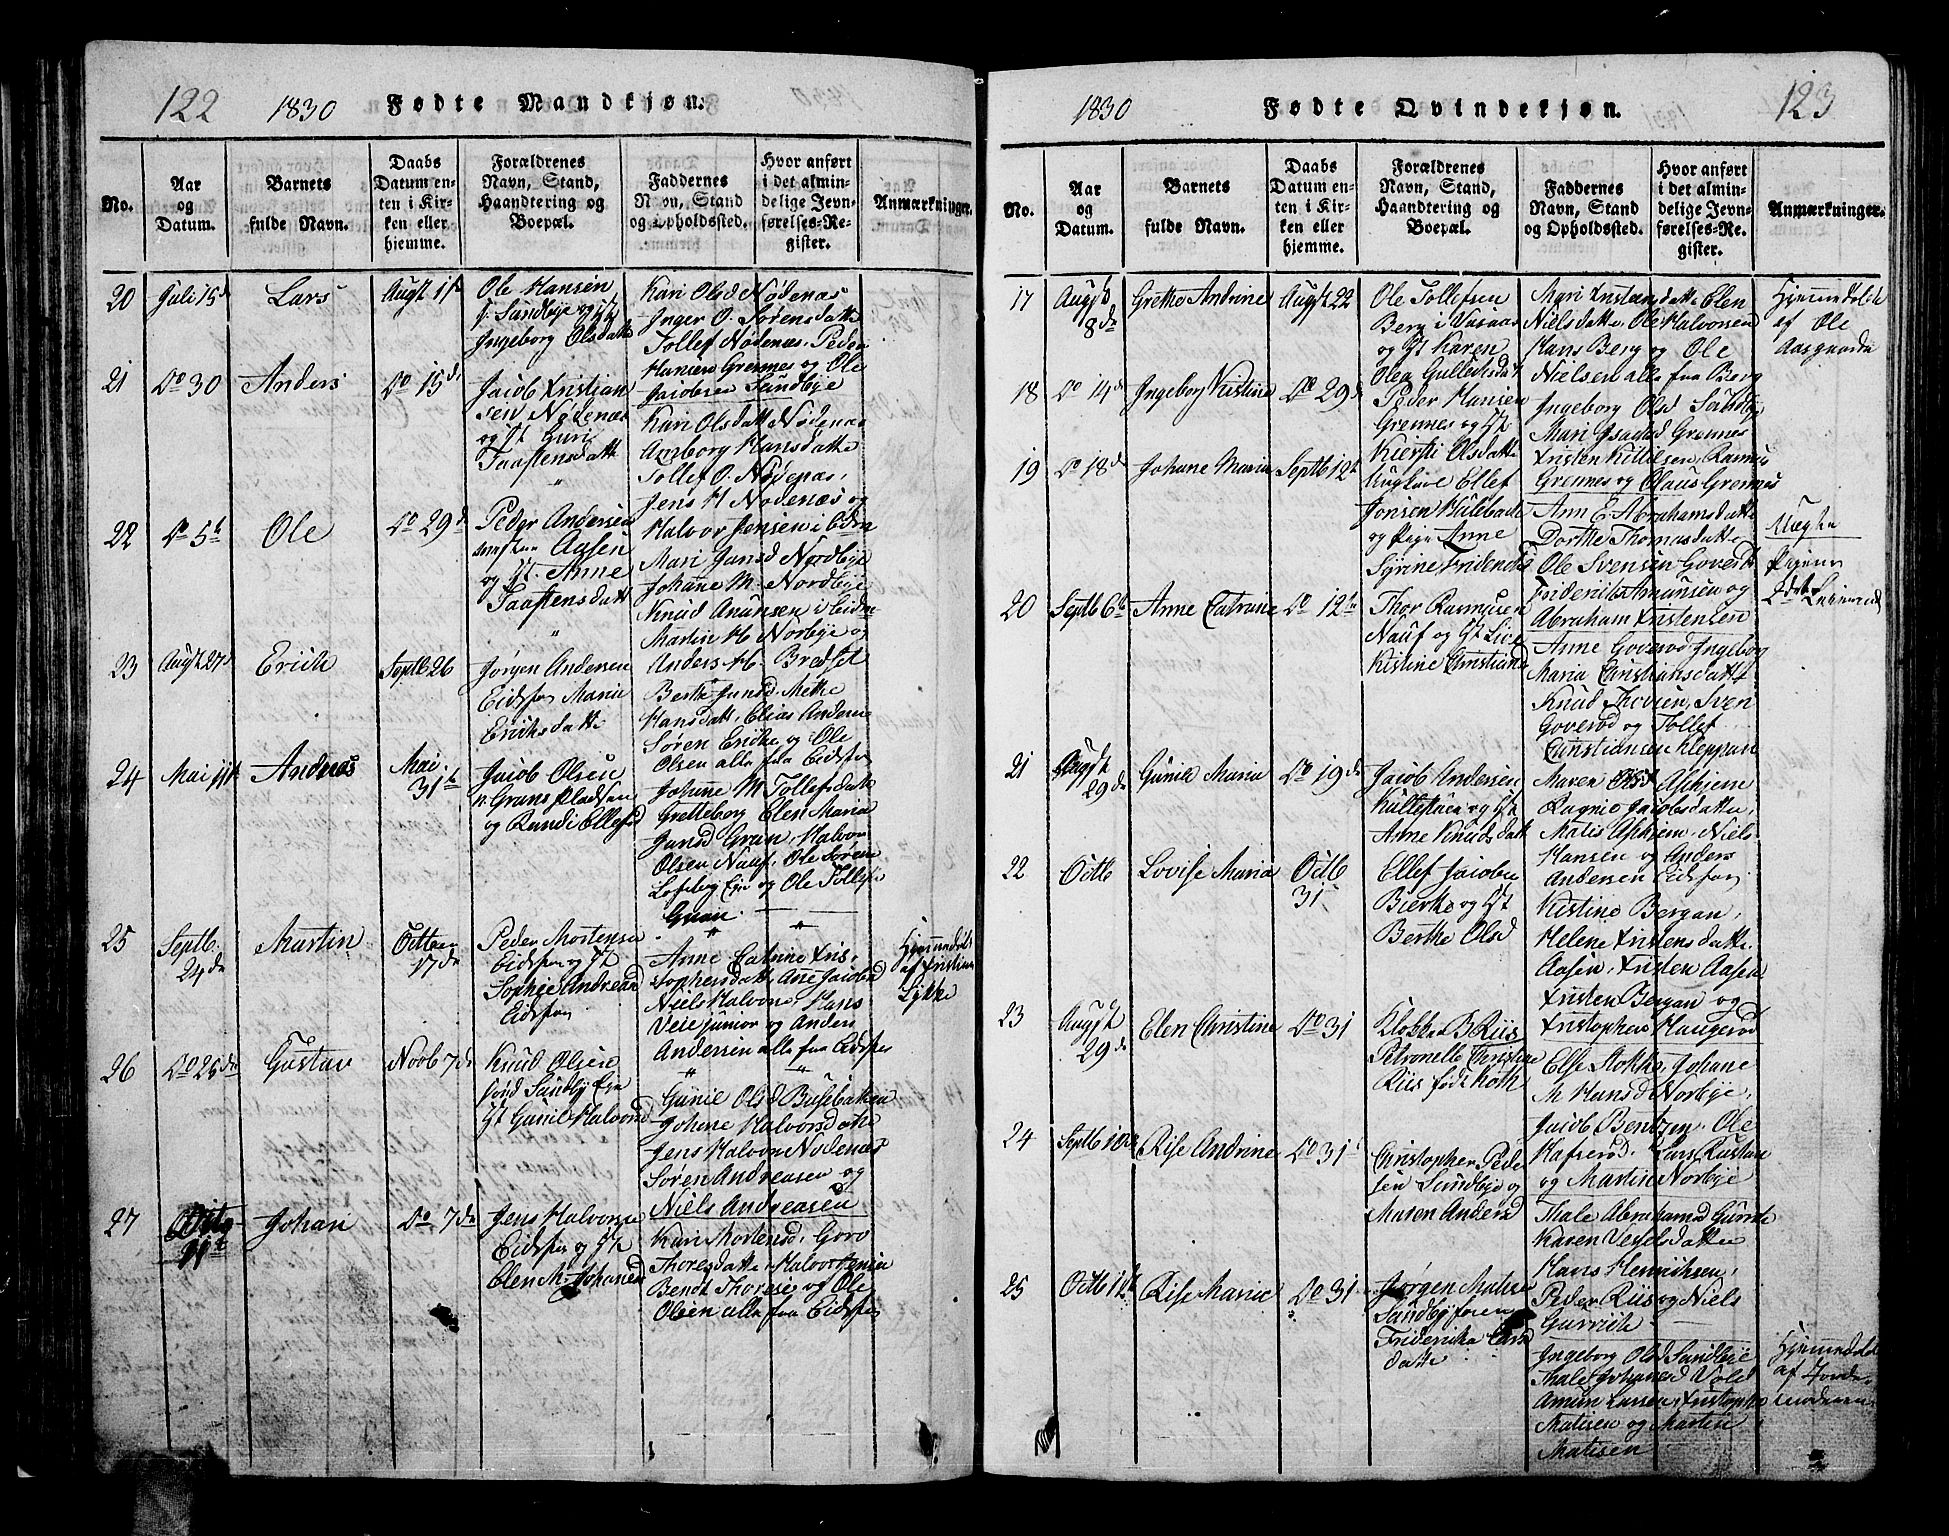 122 1830 Fødte Mandkjøn.
No.
Aar
og
Datum.
Barnets
fulde Navn.
Daabs
Datum en-
ten i Kir-
ken eller
hjemme.
Forældrenes
Navn, Stand,
Haandtering og
Boepæl.
Faddernes
Navn, Stand
og Opholdssted.
Hvor anført
i det almin-
delige Jevn-
førelses-Re-
gister.
Anmærkninger.
20 Juli 15d Lars Augt 1st
Ole Hansen
f. Sandbye og Ht
Ingeborg Olsdatte
Kari Olsd Nødenæs
Inger O. Sørensdatte
Tollef Nødenæs, Peder
Hansen Grennes og Ole
Jacobsen Sandbye
21 Do 30 Anders Do 15d
Jacob Kristian
sen Nødenæs
og Ht Guri
Taaftensdatte
Kari Olsdatte Nødenæs
Amborg Hansdatte
Tollef O. Nødenæs,
Jens H Nødenæs og
Halvor Jensen i Eidn
22 Do 5t Ole Do 29d
Peder Andersen
Aasen
og Ht. Anne
Taaftensdatt
Mari Jansd Nordbye
Johanne M. Nordbye
Knud Anunsen i Eidn
Martin H. Norbye og
Anders H. Bredset
23 Augt 27d Erich Septb 26
Jørgen Andersen
Eidsfos Maria
Erichsdatte
Berthe Jansd. Methe
Hansdatt, Elias Anders
Søren Eriche og Ole
Olsen alle fra Eidsfos
24 Mai 11t Andreas Mai
31t
Jacob Olsen
n. Grans Pladsen
og Randi Ellefsd
Johanne M Tollefsdatt
Gretteborg Elen Maria
Jansd Gran, Halvor
Olsen Nauf, Ole Sørens
Lofsbeg Eje og Ole Tollefs
Gran.
25 Septb.
24da Martin Octber
17da
Peder Mortensen
Eidsfos og Ht
Sophie Andread
Eidsfos
Anne Catrine Kris-
tophersdatt, Ane Jacobsd
Niels Halvors, Hans
Veie junior og Anders
Andersen alle fra Eidsfos
Hjemmedøbt
af Kristian
Lykke
26 Do 26da Gustav Novb 7da
Knud Olsen
Sandby Eje
Ht Gunil Halvorsd
Gunil Olsd Busebakken
Johanne Halvorsdatte
Jens Halvors Nødenæs
Søren Andreasen og
Niels Andreasen
27 Octb
11t Johan Do 7da
Jens Halvorse
Eidsfos og Ht
Elen M. Johansd
Kari Mortensd, Goro
Thoresdatte, Halvor
Bendt Thoresen og Ole
Olsen alle fra Eidsfos
1830 Fødte Qvindekjøn. 123
No.
Aar
og
Datum.
Barnets
fulde Navn.
Daabs
Datum en-
ten i Kir-
ken eller
hjemme.
Forældrenes
Navn, Stand,
Haandtering og
Boepæl.
Faddernes
Navn, Stand
og Opholdssted.
Hvor anført
i det almin-
delige Jevn-
førelses-Re-
gister.
Anmærkninger.
17 Augst
8da Grethe Andrine Augt 22
Ole Tollefsen
Berg i Vasaas
og Ht Karen
Olea Gulledsdatt
Mari Kristensdatte Elen
Nielsdatte, Ole Halvorsen
Hans Berg og Ole
Nielsen alle fra Berg
Hjemmedøbt
af Ole
Aasgaarda
18 Do 14d Ingeborg Kistine Do 29d
Peder Hansen
Grennes og Ht
Kiersti Olsdatte
Ingeborg Olsd Sandby
Mari Isacsd Grennes
Kristen Kittelsen, Rasmus
Grennes og Claus Grennes
19 Do 18d Johane Maria Septb 12t
Ungkarl Ellef
Jonsen Hulebach
og Pige Anne
Syrine Fridericksd
Ann E Abrahamsdatte
Dorthe Thomasdatte
Ole Svensen Goverød
Frederik Amunsen og
Abraham Kristensen
Uægte
Pigens
2det Leiermaal
20 Septb 6t Anne Catrine Do 12te
Thor Rasmusen
Nauf og Ht Lise
Kistine Christiansd
Anne Goverød Ingeborg
Maria Christiansdatte
Knud Thovsen, Sven
Goverød og Tollef
Christiansen Kleppan
21 Augst
29da Gunild Maria Do 19da
Jacob Andersen
og Ht
Anne Knudsdatt
Maren Olsd Askjem
Ragnie Jacobsdatte,
Matis Askjem, Niels
Hansen og Anders
Andersen Eidsfos
22 Octb Lovise Maria Octb
31
Ellef Jacobse
Bierke og Ht
Berthe Olsd
Kistine Bergan,
Helene Kristensdatte
Aasen, Kristen Aasen
Kristen Bergan og
Kristopher Haugerød
23 Augst
29da Elen Christine Do 31
Klokker B Riis
Petronelle Christine
Riis født Koth
Else Stokke, Johane
M Hansd Norbye,
Jacob Bentzen. Ole
Kafserød, Lars Rustan
og Martin Norbye
24 Septb 10da Rise Andrine Do 31
Christopher Peder
sen Sandbye og
Maren Andersd
Thale Abrahamsd Gurrite
Karen Veselsdatte
Hans Henrichsen,
Peder Riis og Niels
Gurrich
25 Octb 12t Rise Marie Do 31
Jørgen Matise
Sandby
Friderika Lars
datte
Ingeborg Olsd Sandbye
Thale Johansd Vold
Amun Larsen, Kristopher
Matisen og Martin
Matisen
Hjemmedøbt
af Jorde-
moderen